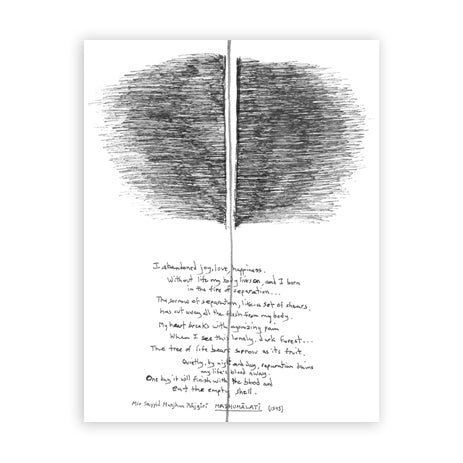 I abandoned joy, love, happiness.
Without life my body lives on, and I burn
in the fire of separation...
The sorrow of separation, like a set of shears,
has cut away all the flesh from my body.
My heart breaks with agonizing pain
When I see this lonely, dark forest...
The tree of life bears sorrow as its fruit.
Quietly, by night and day, separation drains
my life's blood away.
One day it will finish with the blood and
eat the empty shell.
Mir Sayyid Manjhan Rājgīrī MADHUMĀLATĪ (1545)